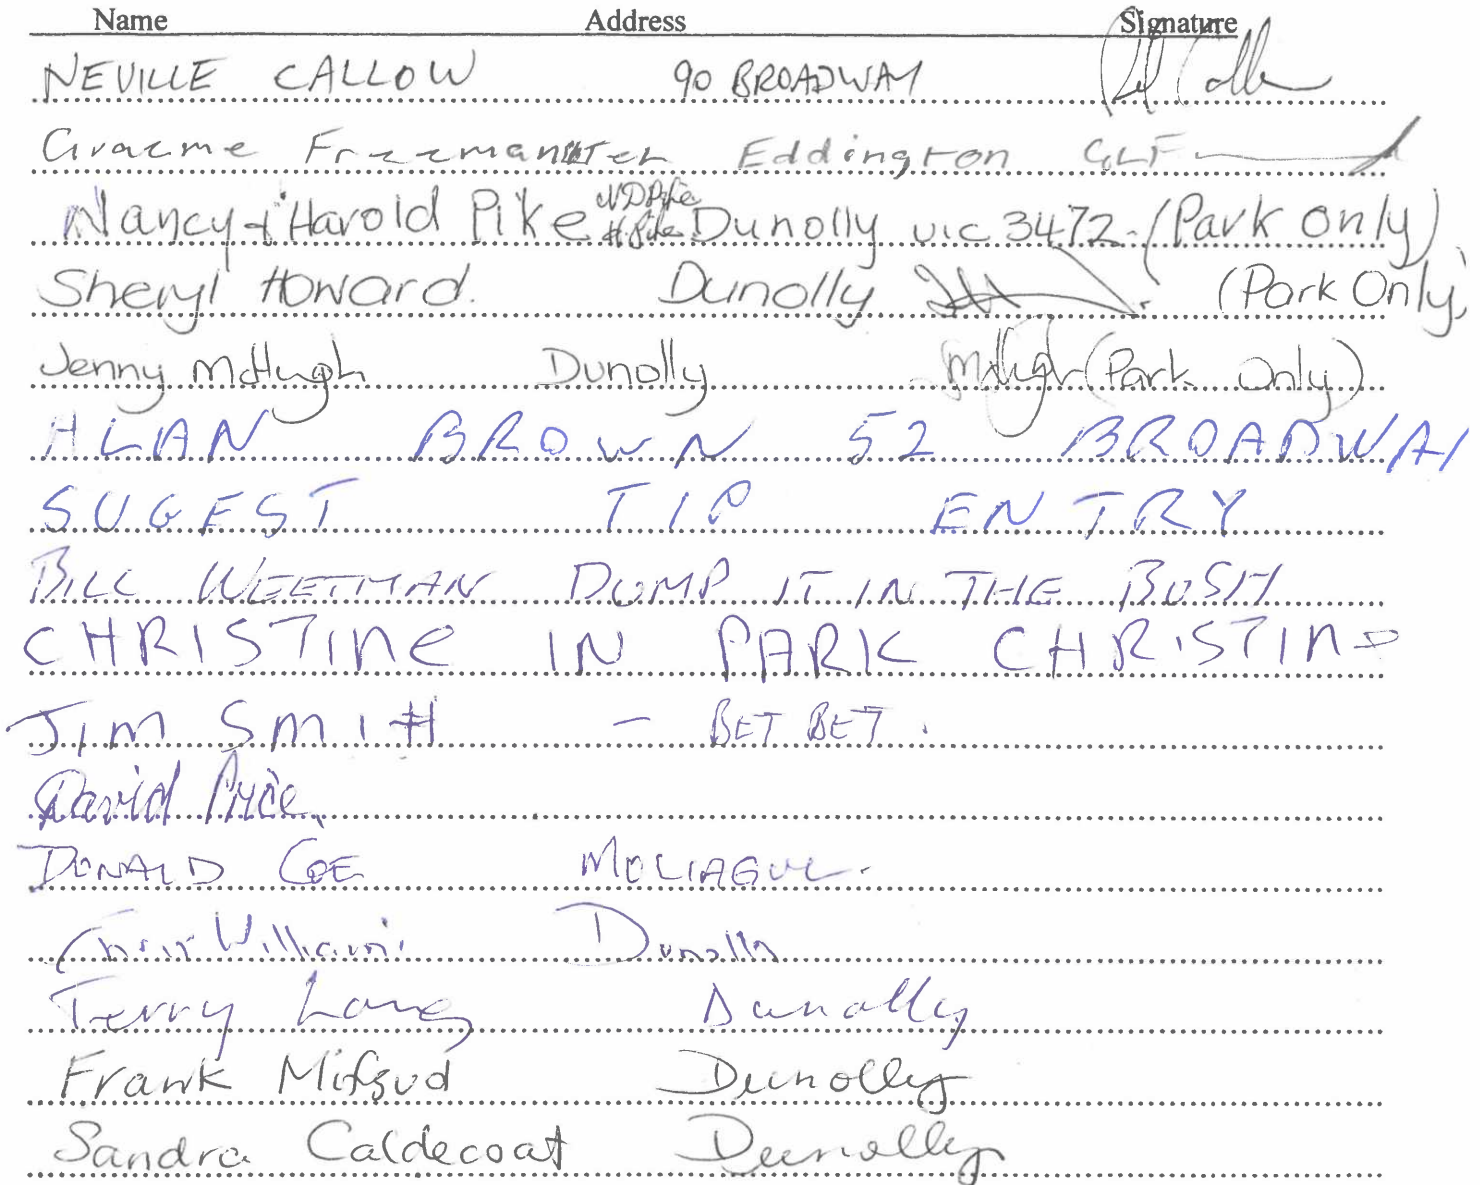 Name Address Signature
NEVILLE CALLOW 90 BROADWAY
Graeme Freemantle Eddington GLF
Nancy + Harold Pike NDPike H.Pike Dunolly vic 3472 (Park only)
Sheryl Howard. Dunolly (Park Only)
Jenny McHugh Dunolly McHugh (Park Only)
ALAN BROWN 52 BROADWAY
SUGEST TIP ENTRY
BILL WEETMAN DUMP IT IN THE BUSH
CHRISTINE IN PARK CHRISTINE
JIM SMITH - BET BET.
David Price
DONALD COE MOLIAGUL.
Chris Williams Dunolly
Terry Long Dunolly
Frank Mifsud Dunolly
Sandra Caldecoat Dunolly